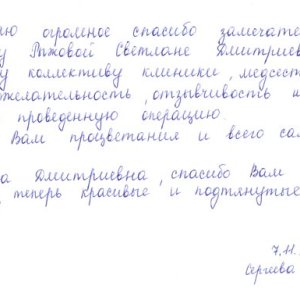 ю огромное спасибо замечате
у Рыжовой Светлане Дмитриев
у коллективу клиники, медсест
желательность, отзывчивость и
проведенную операцию.
Вам процветания и всего са
а Дмитриевна, спасибо Вам
, теперь красивые и подтянутые
7.11.
Сергеева